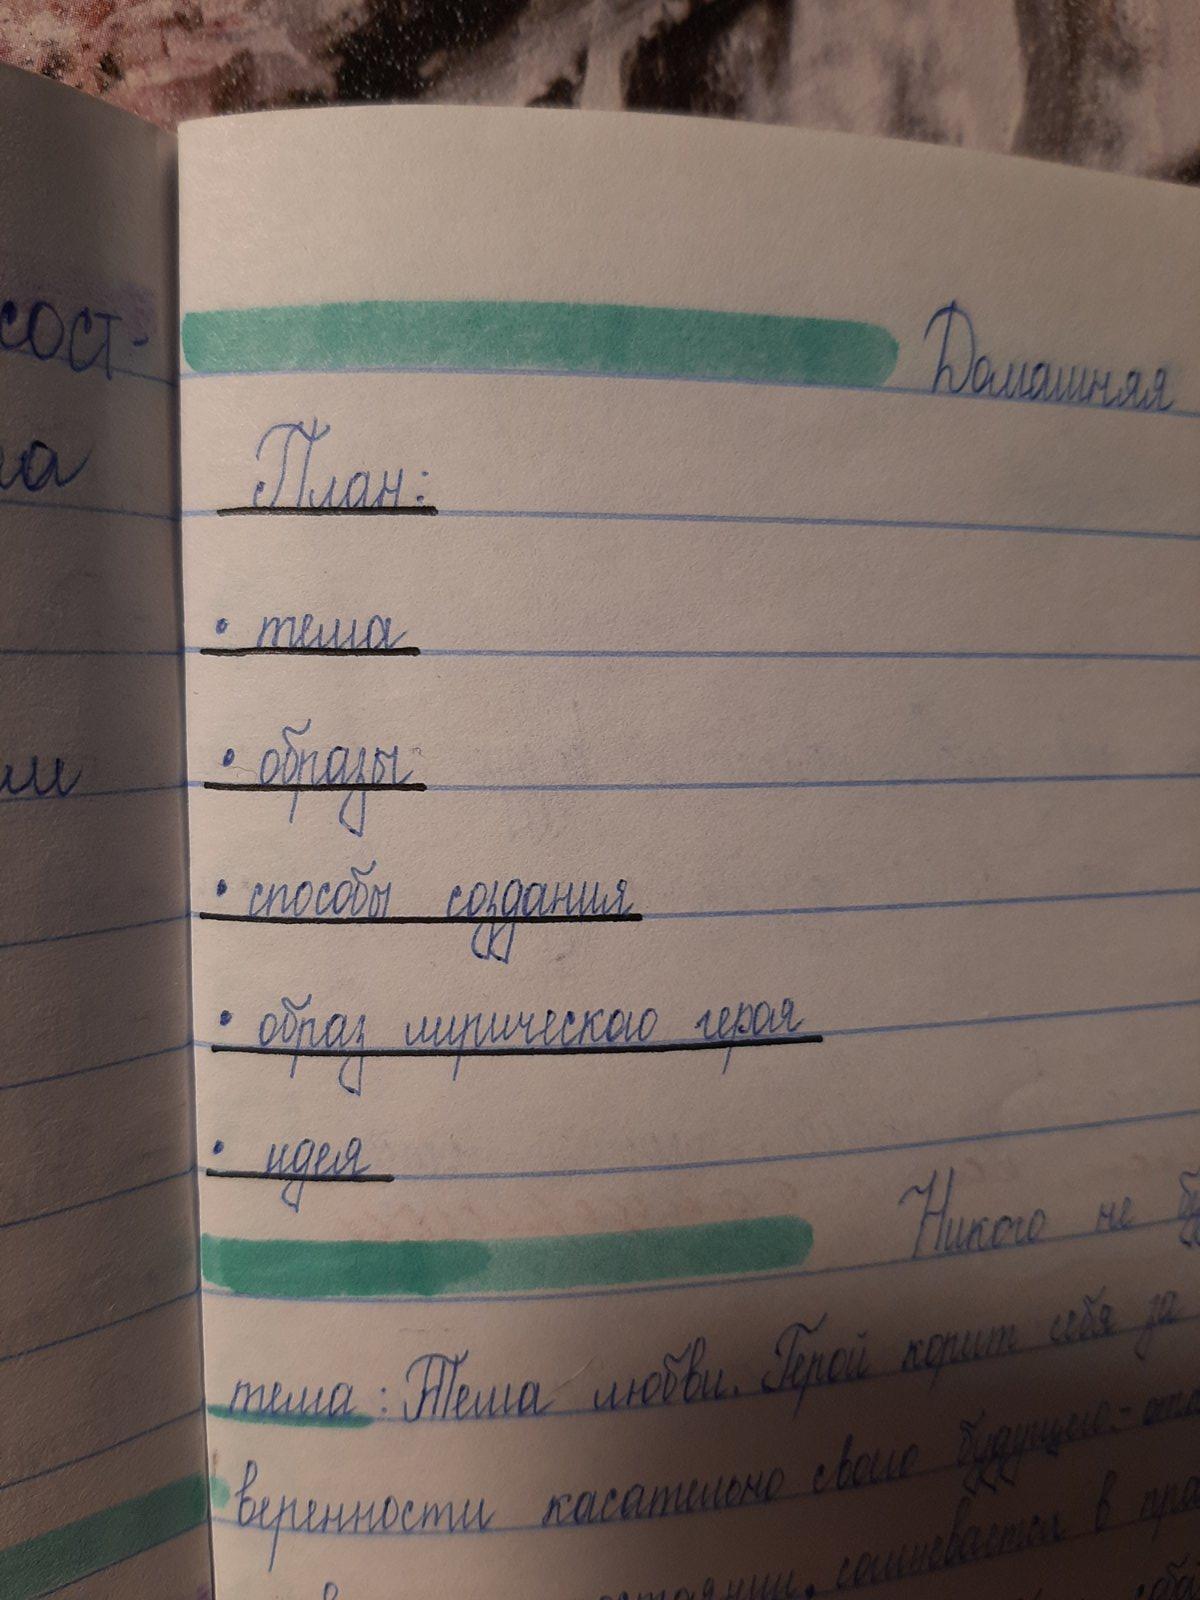 сост-
Домашняя
План:
• тема
• образы
• способы создания
• образ лирического героя
• идея
Никого не
тема: Тема любви. Герой корит себя за
веренности касательно свою будущего.-
сомневается в